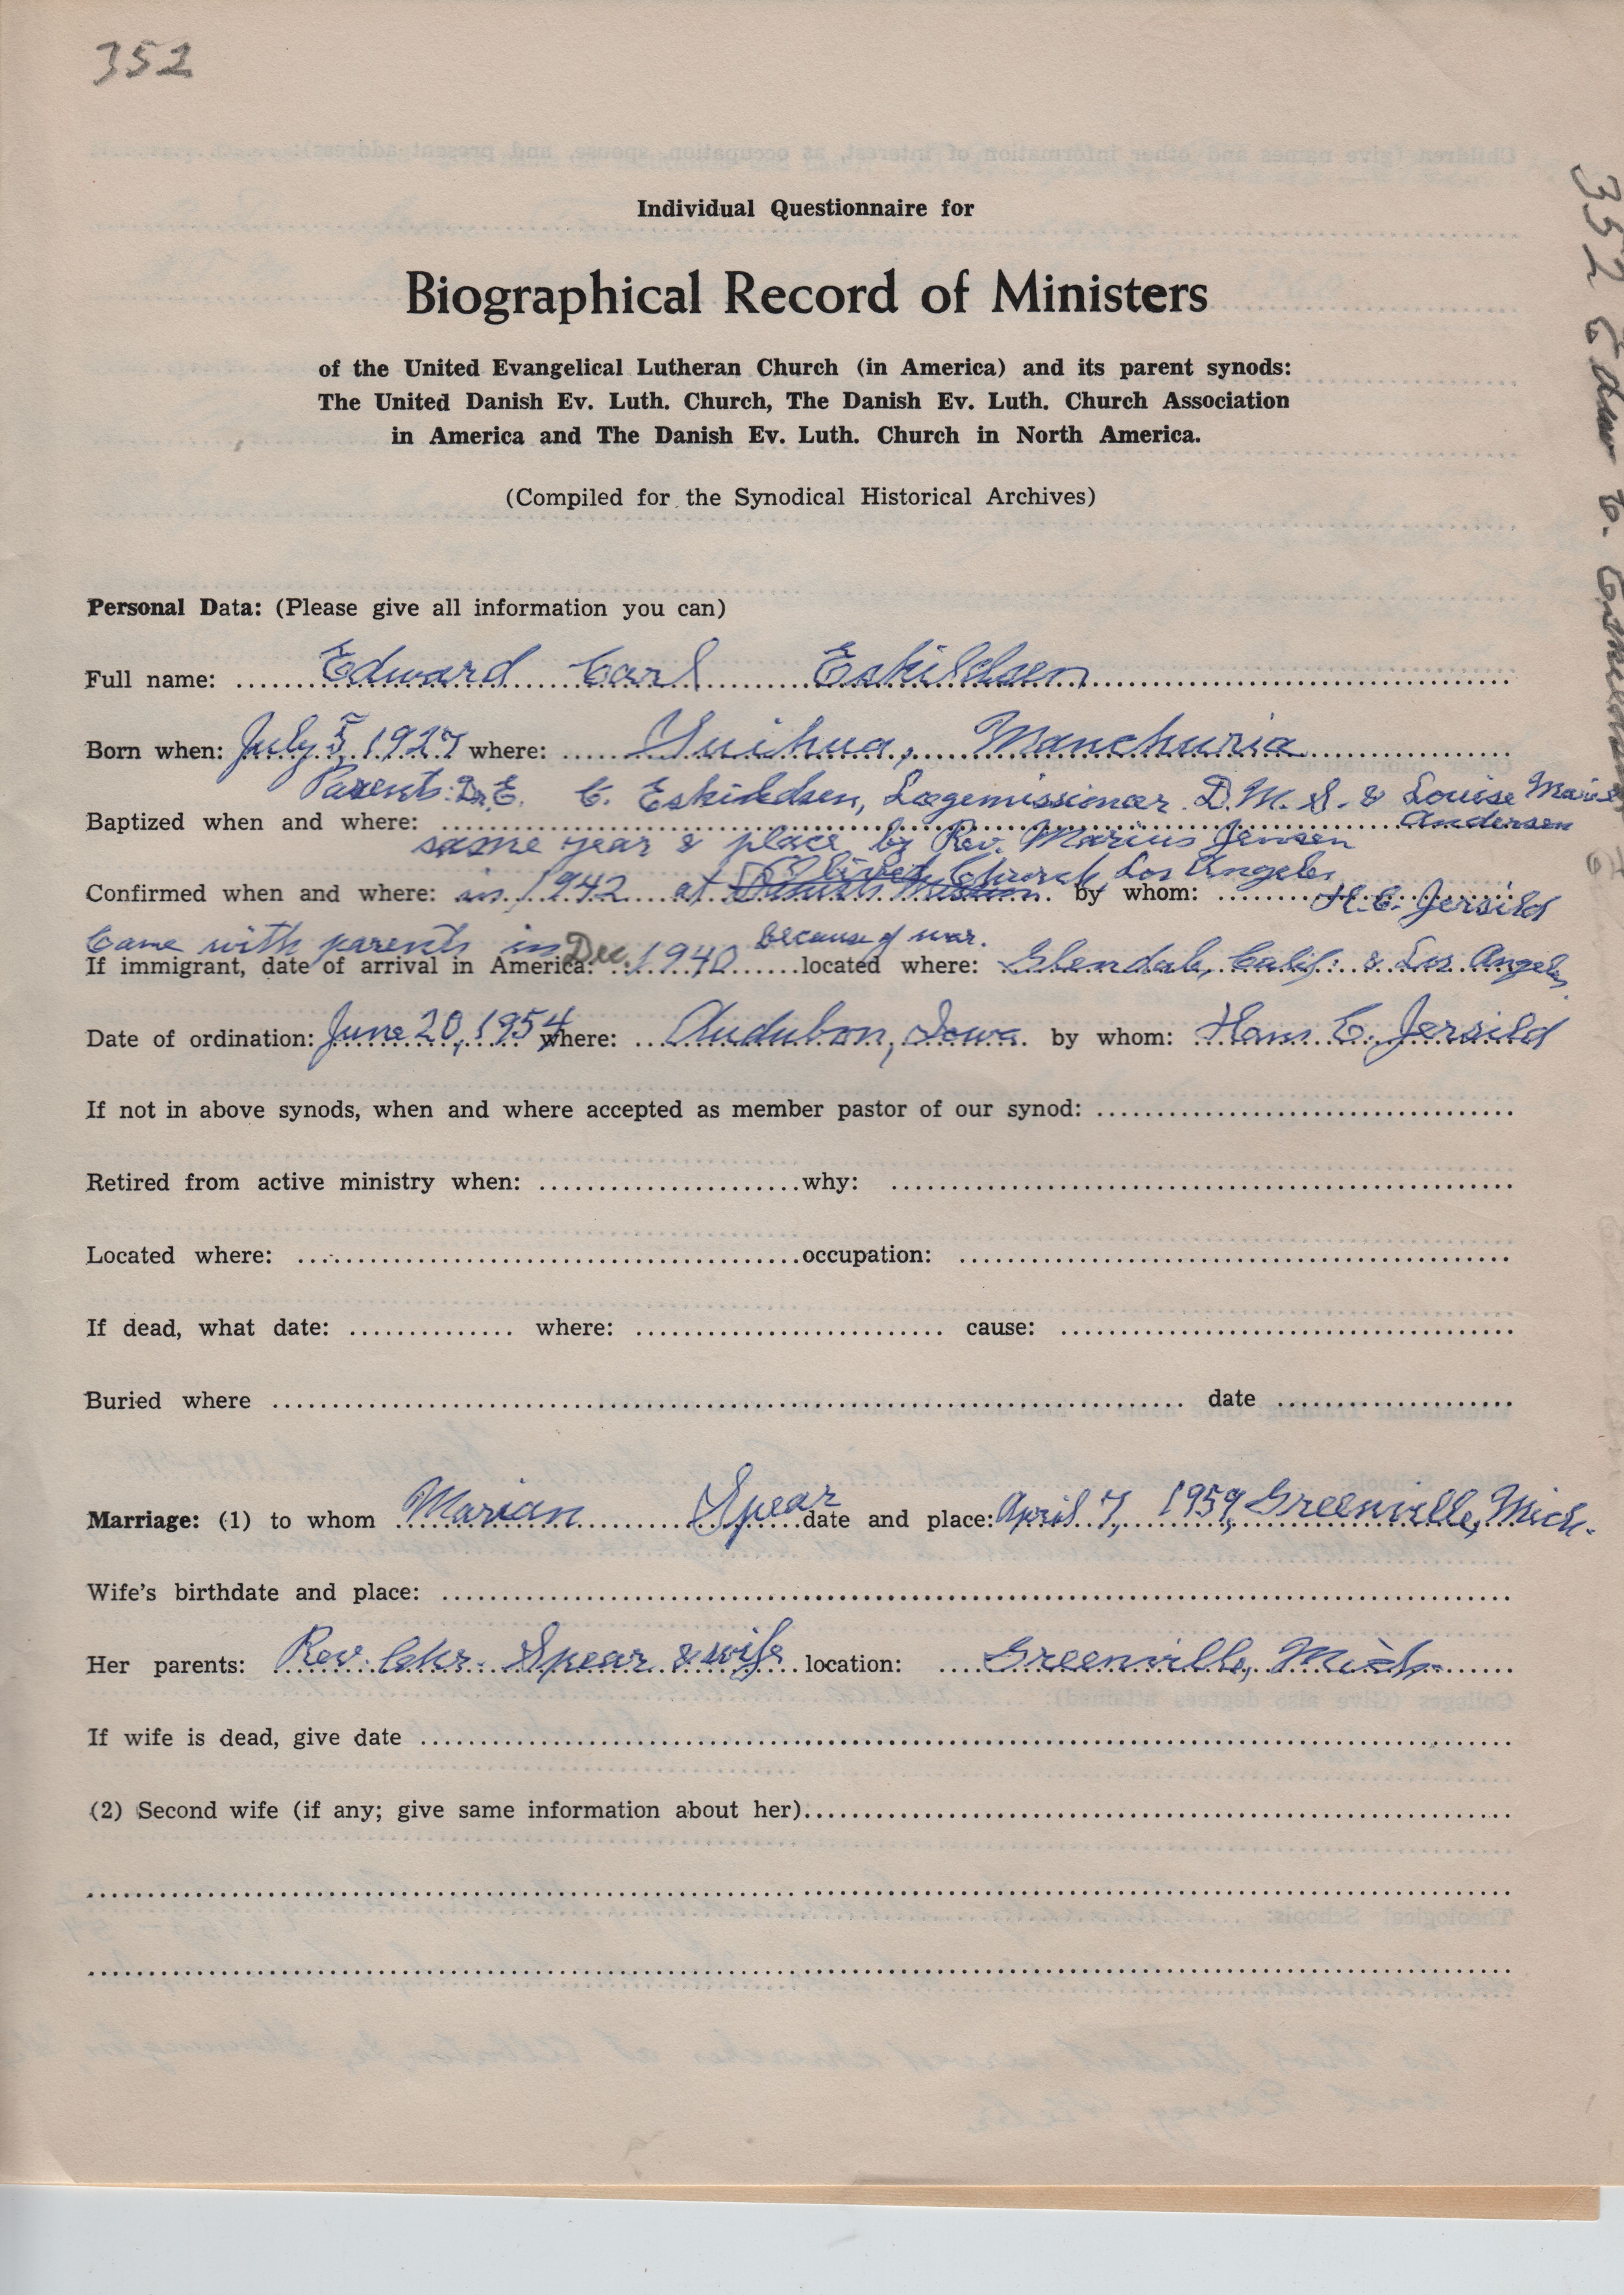 352
352 Edw. C. Eskildsen
Individual Questionnaire for
Biographical Record of Ministers
of the United Evangelical Lutheran Church (in America) and its parent synods:
The United Danish Ev. Luth. Church, The Danish Ev. Luth. Church Association
in America and The Danish Ev. Luth. Church in North America.
(Compiled for the Synodical Historical Archives)
Personal Data: (Please give all information you can)
Full name: Edward Carl Eskildsen
Born when: July 5, 1927 where: Suihua, Manchuria
Parents: Dr. E. C. Eskildsen, Lægemissionær D.M.S. & Louise Marie
Baptized when and where: Andersen
same year & place by Rev. Marius Jensen
Church Los Angeles
Confirmed when and where: in 1942 at by whom: H.C. Jersild
Came with parents in because of war.
If immigrant, date of arrival in America: Dec 1940 located where: Glendale, Calif. & Los Angeles
Date of ordination: June 20, 1954 where: Audubon, Iowa by whom: Hans C. Jersild
If not in above synods, when and where accepted as member pastor of our synod:
Retired from active ministry when: why:
Located where: occupation:
If dead, what date: where: cause:
Buried where date
Marriage: (1) to whom Marian Spear date and place: April 7, 1959, Greenville, Mich.
Wife's birthdate and place:
Her parents: Rev. Chr. Spear & wife location: Greenville, Mich.
If wife is dead, give date
(2) Second wife (if any; give same information about her)